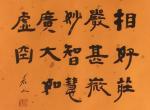 相好莊
嚴甚微
妙智慧
廣大如
虛空